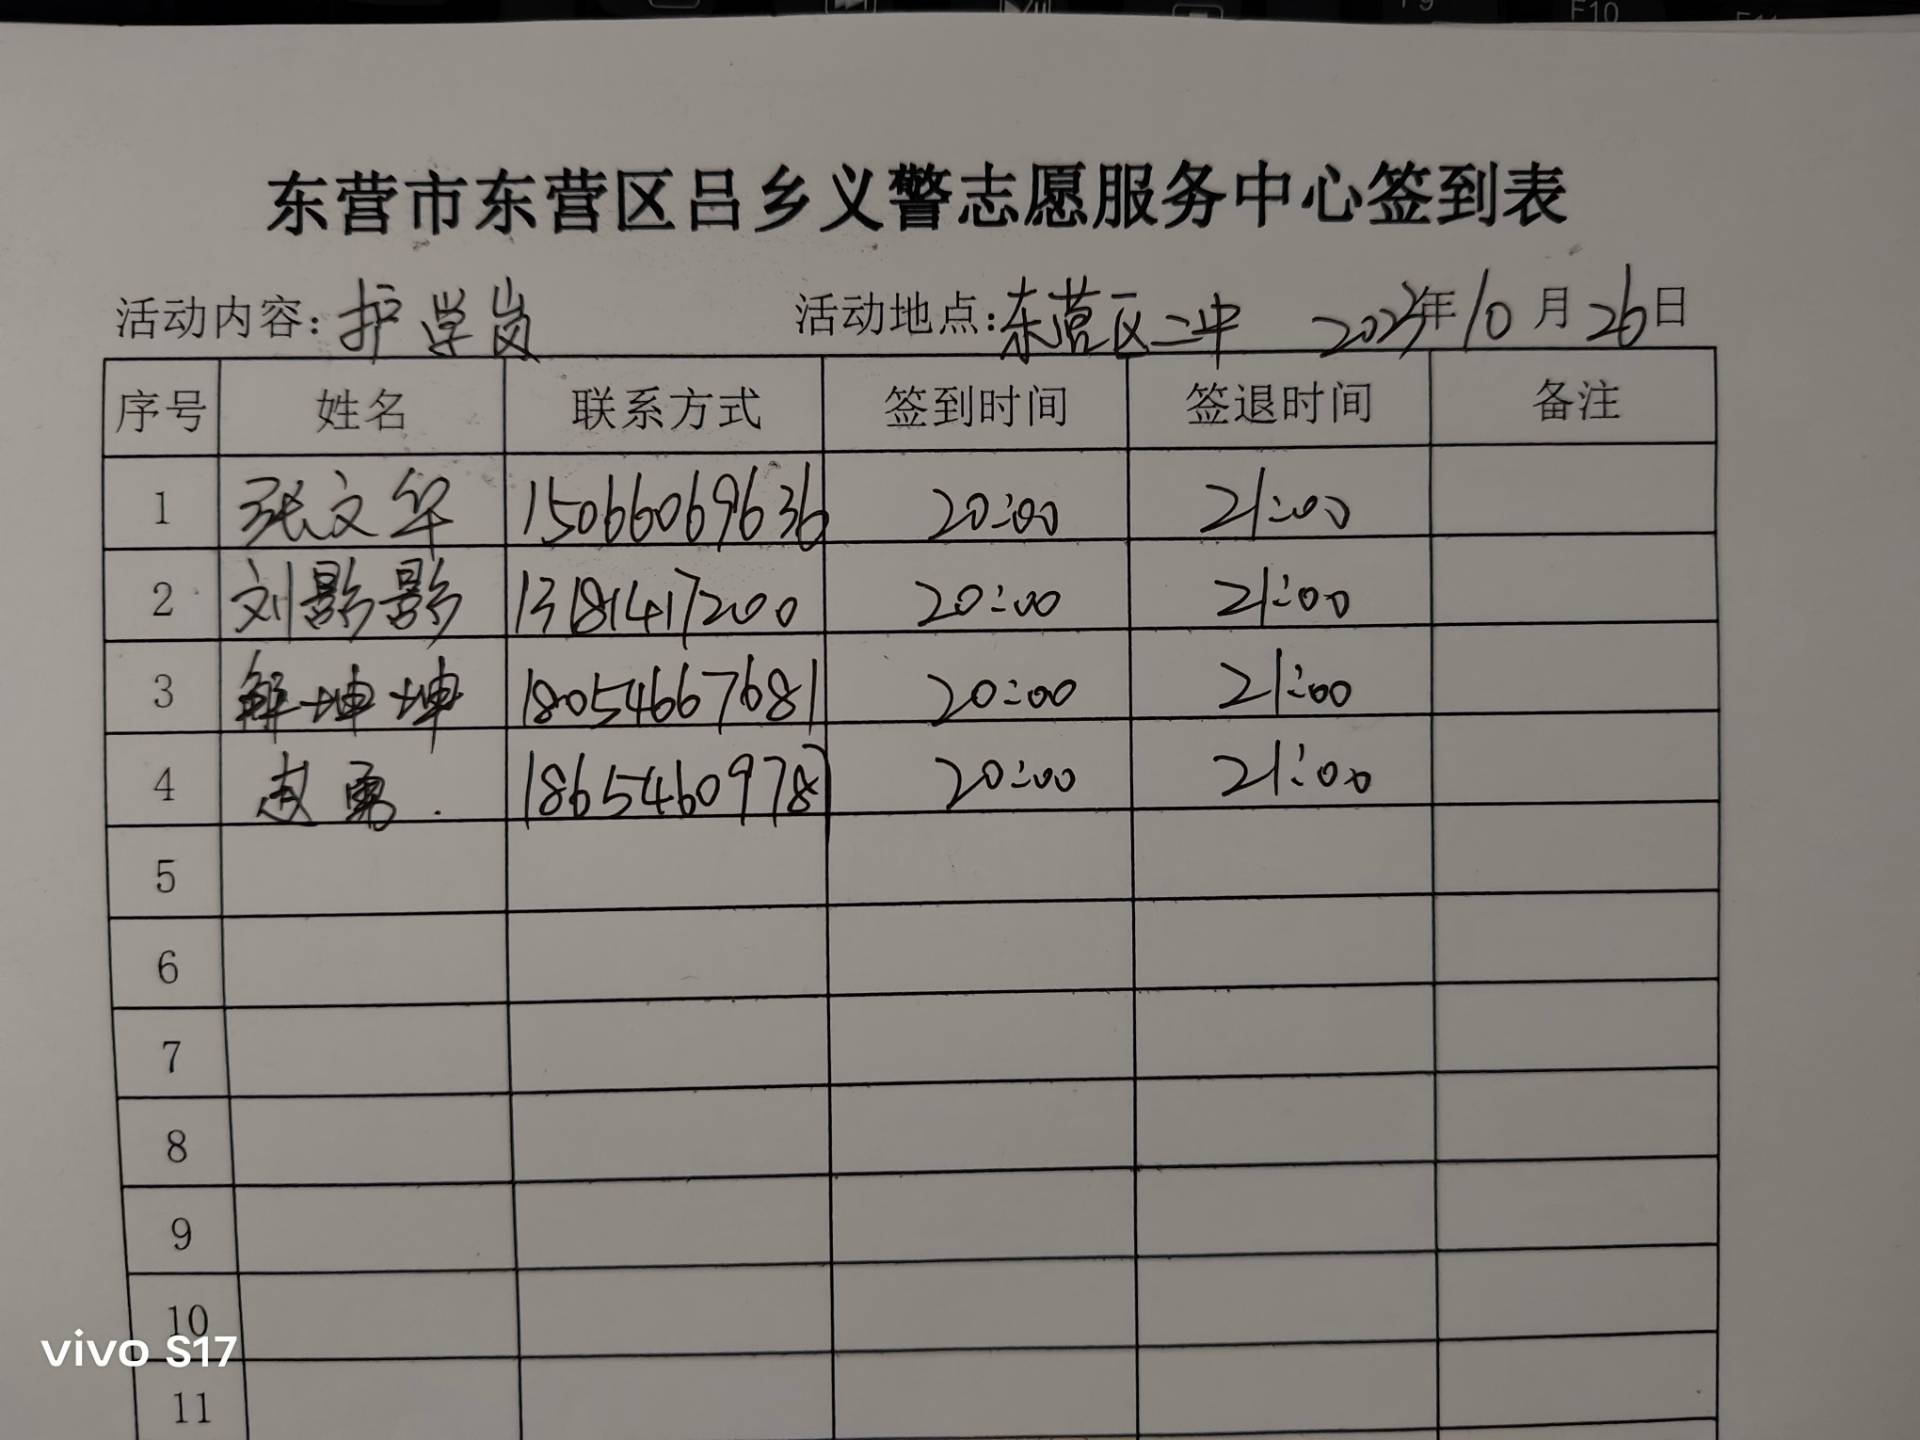 F9 F10
东营市东营区吕乡义警志愿服务中心签到表
活动内容:护学岗 活动地点:东营区二中 2023年10月26日
序号 姓名 联系方式 签到时间 签退时间 备注
1 张文华 15066069636 20:00 21:00
2 刘影影 13181417200 20:00 21:00
3 解坤坤 18054667681 20:00 21:00
4 赵勇 18654609787 20:00 21:00
5
6
7
8
9
10
11
vivo S17